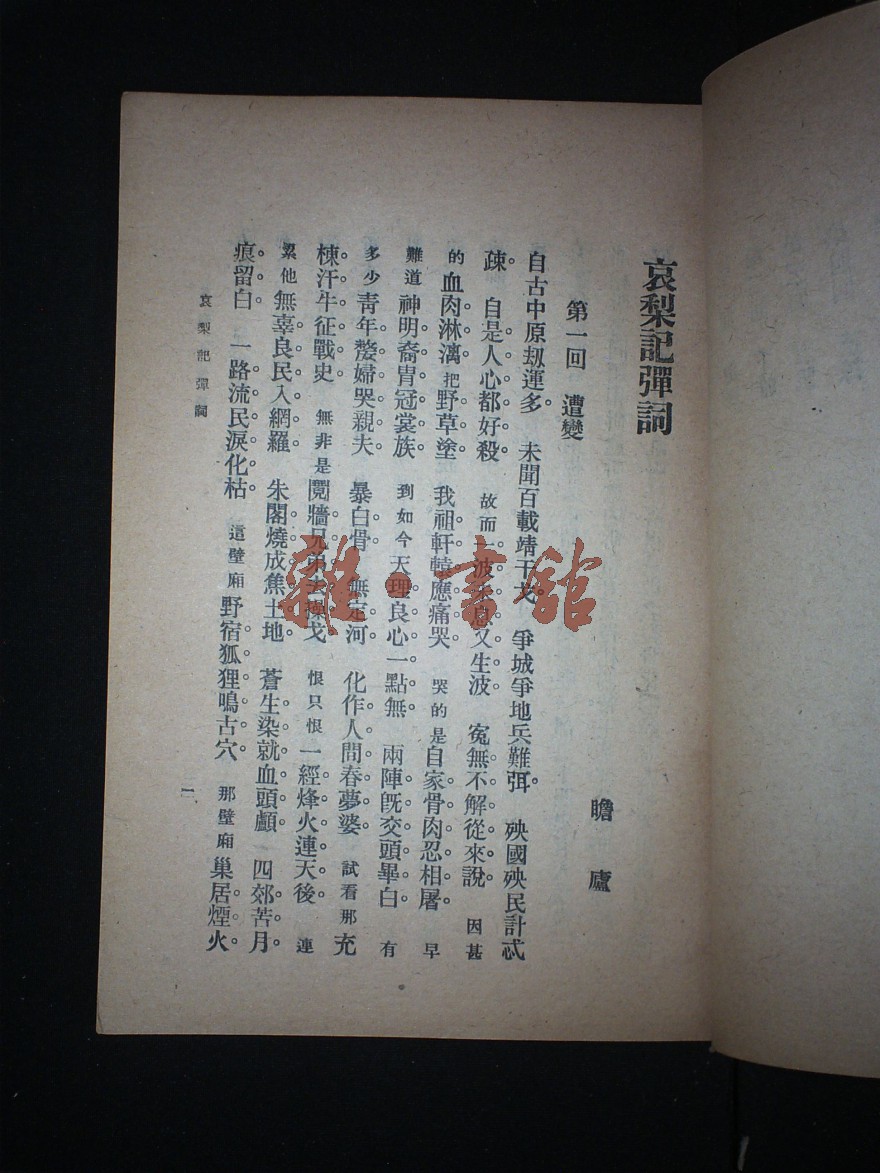 哀梨記彈詞
瞻廬
第一回　遭變
自古中原刼運多。未聞百載靖干戈。爭城爭地兵難弭。殃國殃民計忒
疎。自是人心都好殺。故而一波未息又生波。寃無不解從來說。因甚
的血肉淋漓把野草塗。我祖軒轅應痛哭。哭的是自家骨肉忍相屠。早
難道神明裔胄冠裳族。到如今天理良心一點無。兩陣旣交頭畢白。有
多少靑年嫠婦哭親夫。暴白骨。無定河。化作人間春夢婆。試看那充
棟汗牛征戰史。無非是鬩牆兄弟去操戈。恨只恨一經烽火連天後。連
累他無辜良民入網羅。朱閣燒成焦土地。蒼生染就血頭顱。四郊苦月
痕留白。一路流民淚化枯。這壁廂野宿狐狸鳴古穴。那壁廂巢居煙火
哀梨記彈詞
一
雜·書館